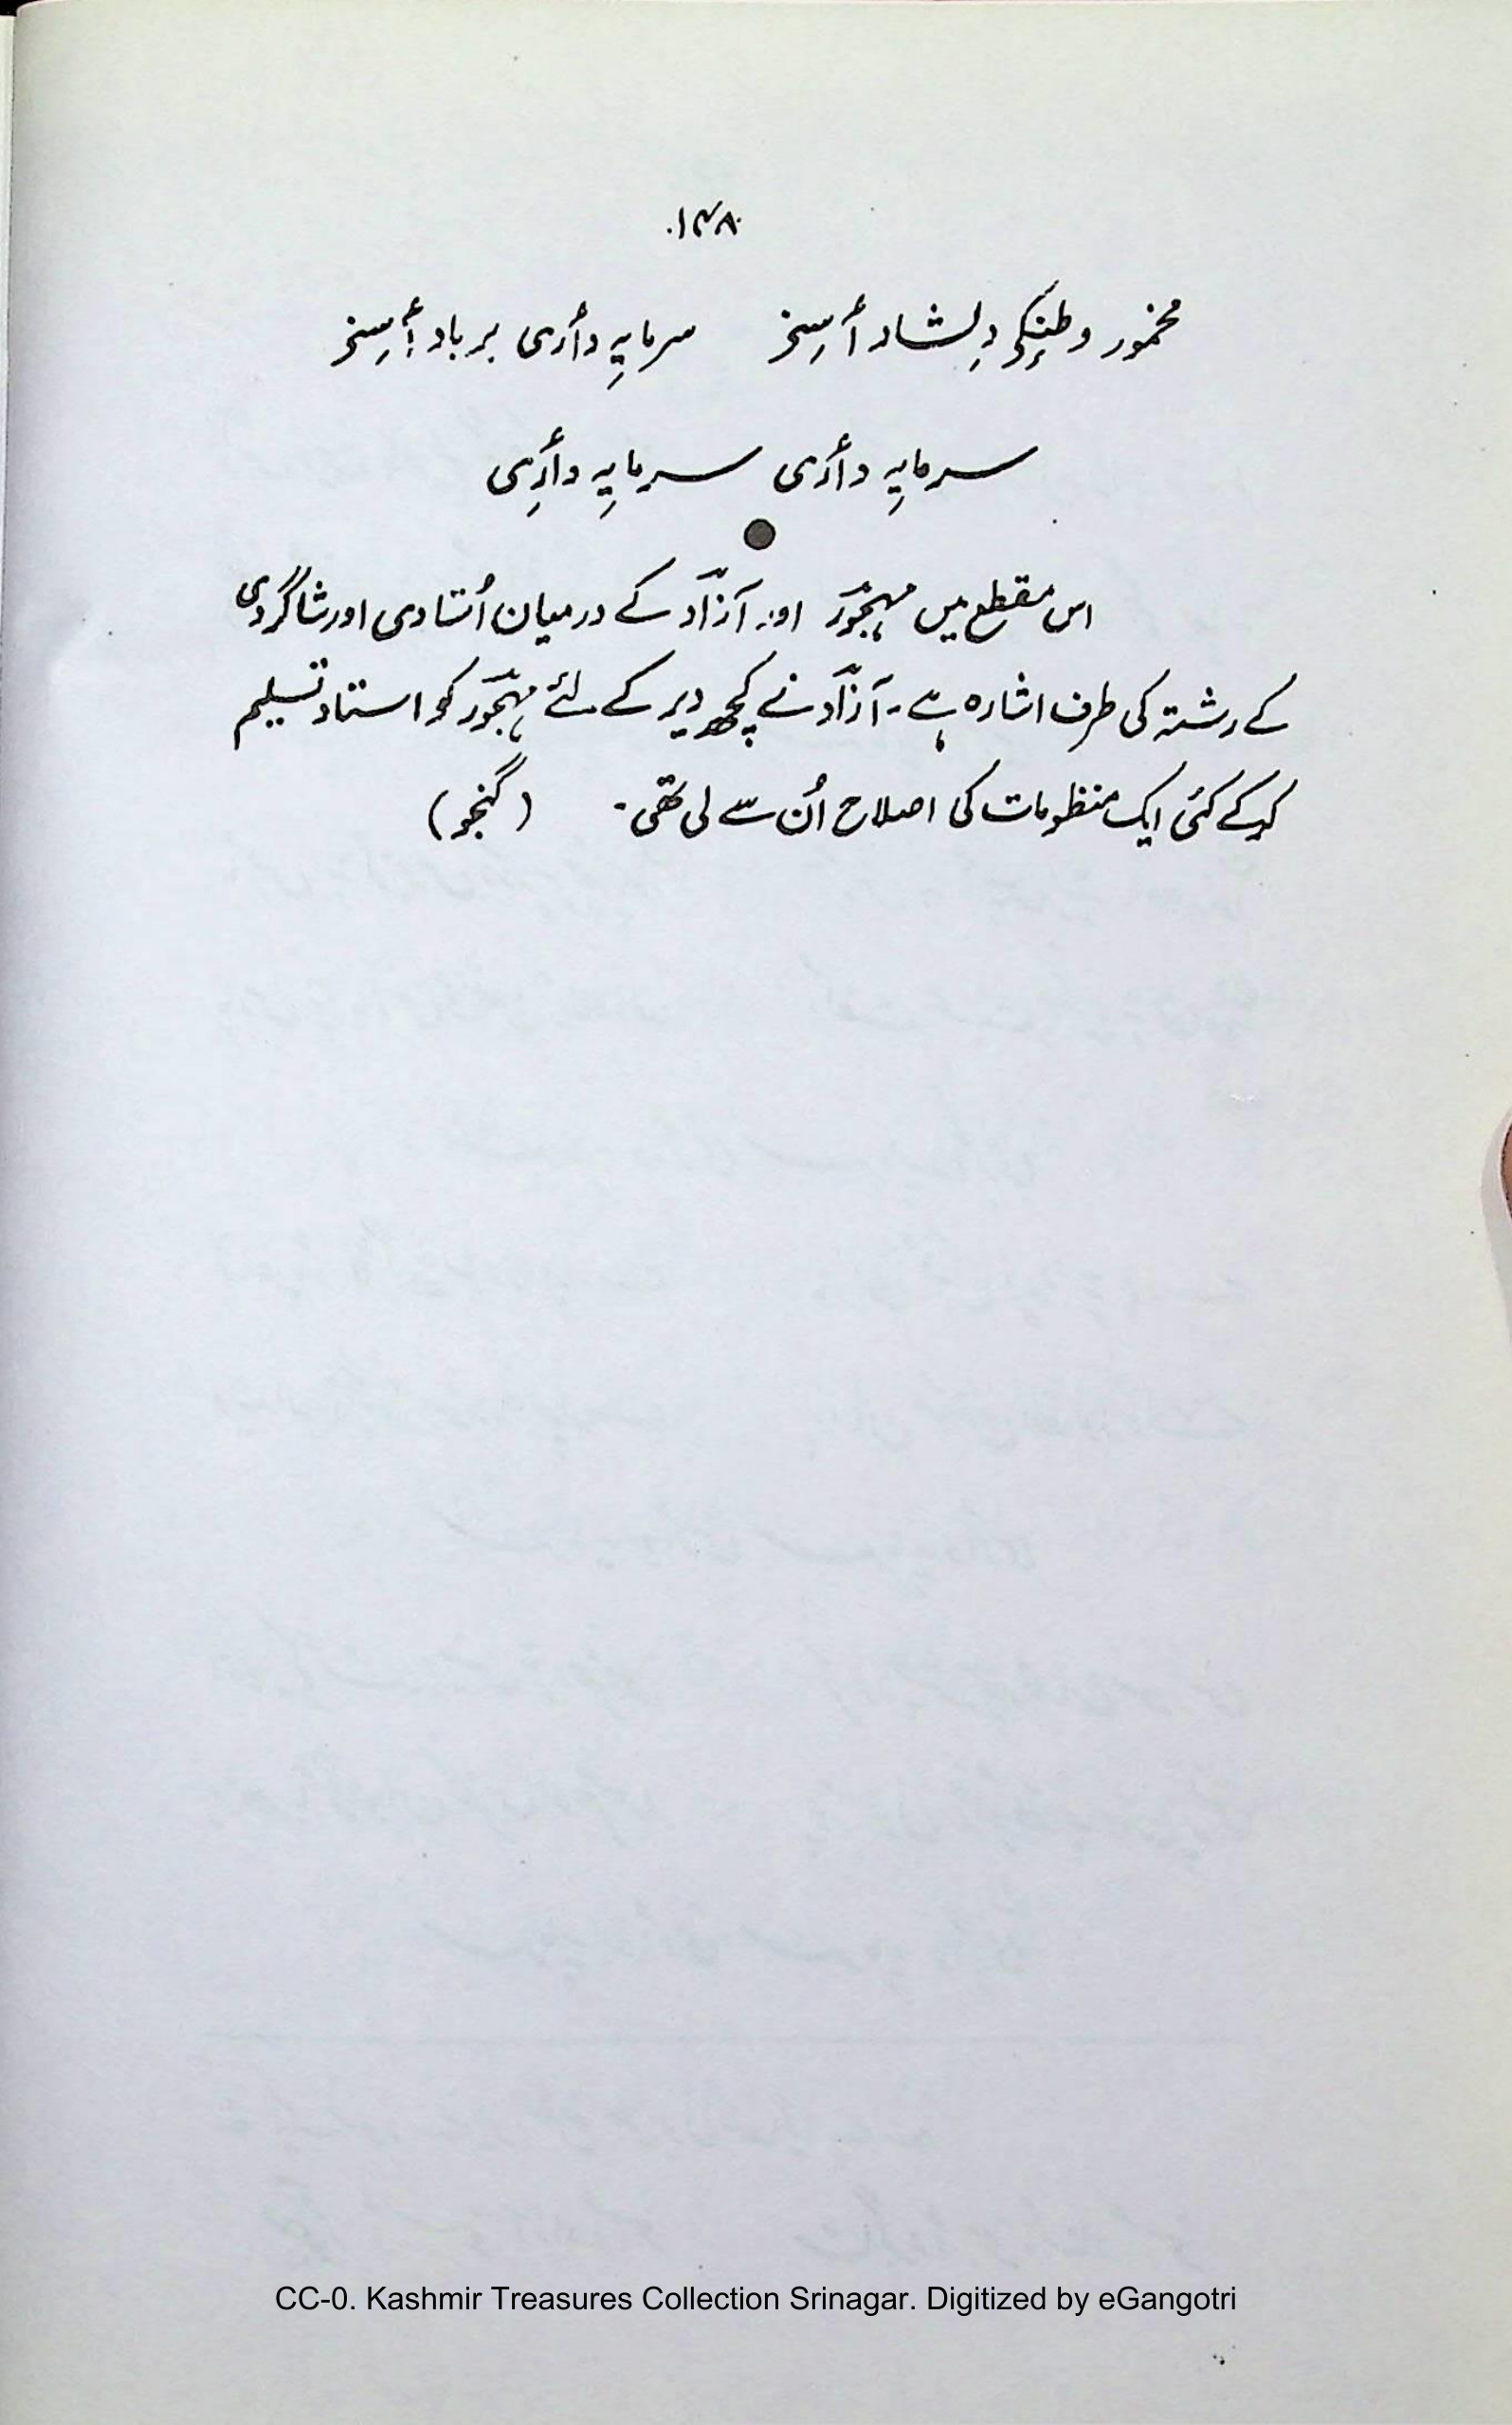 ۱۴۸
مخمور وطنٕکۍ دِلشاد أسِتَن سرمایہِ دأری برباد أسِتَن
سرمایہِ دأری سرمایہِ دأری
اس مقطع میں مہجوؔر اور آزاؔد کے درمیان اُستادی اور شاگردی
کے رشتہ کی طرف اشارہ ہے۔ آزاؔد نے کچھ دیر کے لئے مہجوؔر کو استاد تسلیم
کرکے کئی ایک منظومات کی اصلاح اُن سے لی تھی۔ (گنجو)
CC-0. Kashmir Treasures Collection Srinagar. Digitized by eGangotri